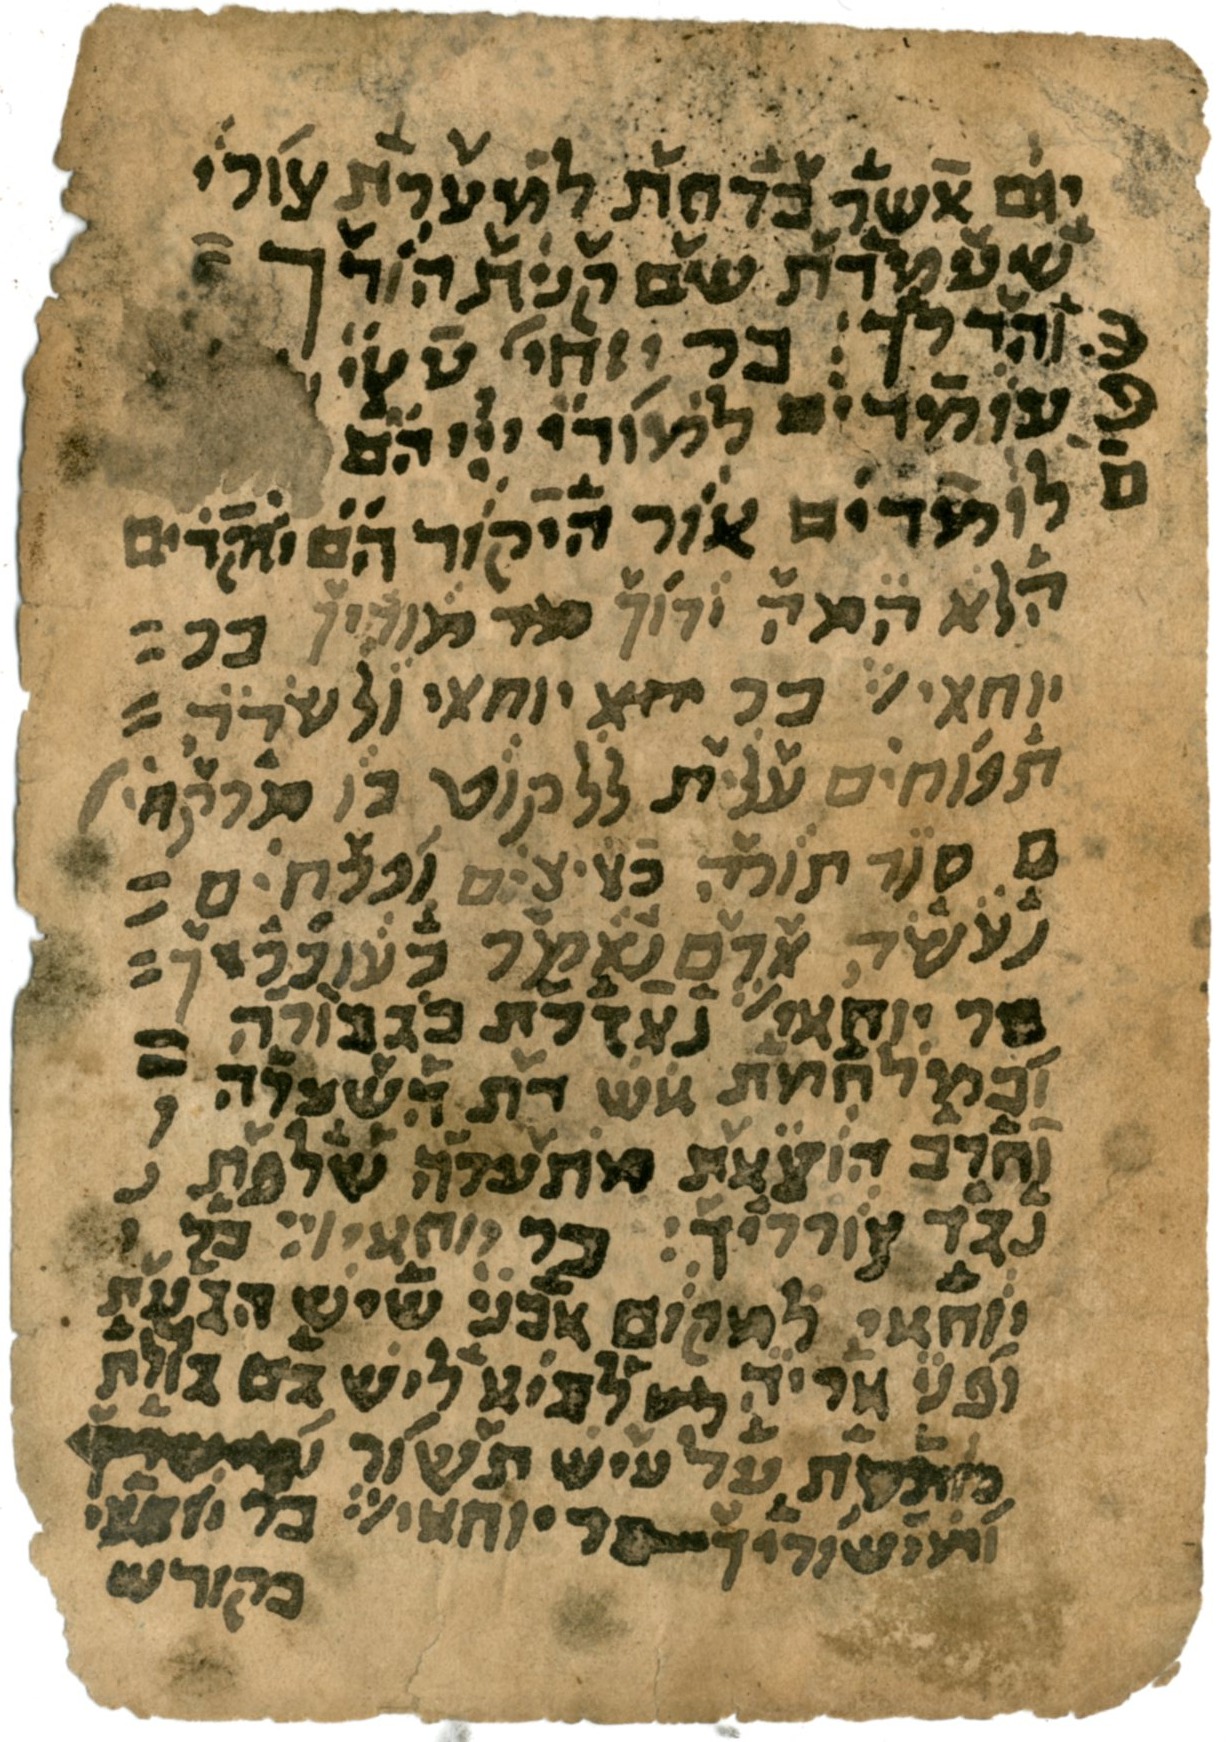 יום אשר ברחת למערת צורי
שעמדת שם קנית הודך
והדרך: בר יוחי עצי
עומדים למודי ייי הם
לומדים אור היקוד הם יוקדים
הלא המה יורוך מד מוריך בר
יוחאי בר יוחאי ולשדה
תפוחים עלית ללקוט בו מרקחי
ם סוד תורה בציצים ופרחים
נעשה אדם נאמר בעובריך
בר יוחאי נאזרת בגבורה
ובמלחמת אש דת השערה
וחרב הוצאת מתערה שלפת
נגד צורריך: בר יוחאי
יוחאי למקום אבני שיש הגעת
ופני אריה לביא ליש גם גולת
כותרת על עיש תשור
ומי ישוריך בר יוחאי בר יוחאי
בקודש